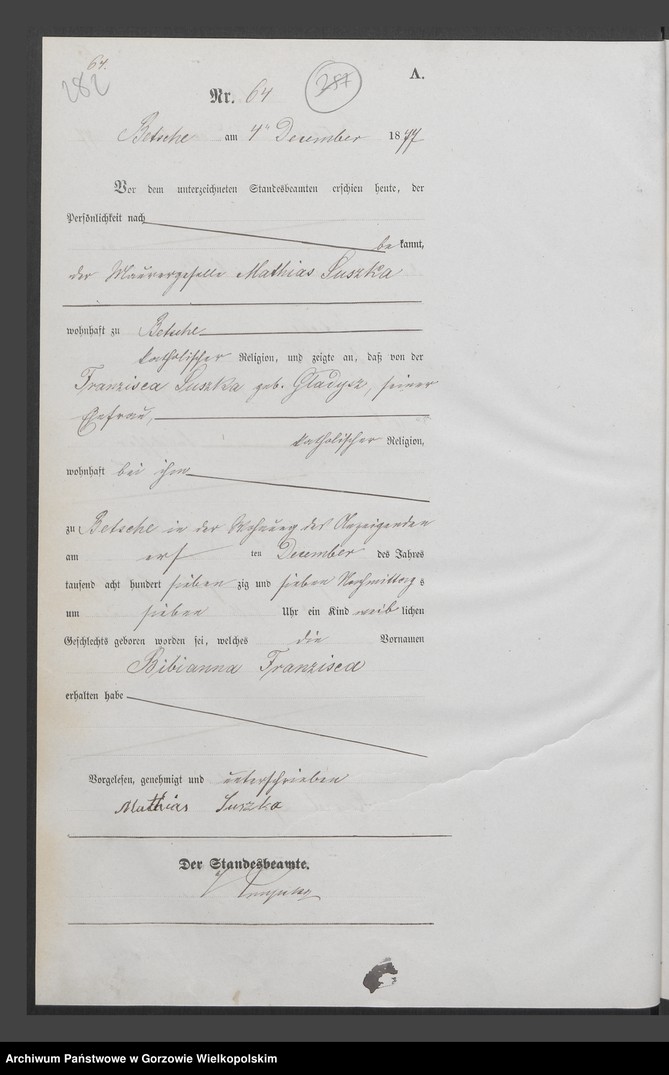 64.
282
A.
Nr. 64
287
Betsche am 4ten December 1877
Vor dem unterzeichneten Standesbeamten erschien heute, der
Persönlichkeit nach
be kannt,
der Maurergeselle Mathias Suszka
wohnhaft zu Betsche
katholischer Religion, und zeigte an, daß von der
Franzisca Suszka geb. Gladysz, seiner
Ehefrau,
katholischer Religion,
wohnhaft bei ihm
zu Betsche in der Wohnung des Anzeigenden
am ersten December des Jahres
tausend acht hundert sieben zig und sieben Nachmittag s
um sieben Uhr ein Kind weib lichen
Geschlechts geboren worden sei, welches die Vornamen
Bibianna Franzisca
erhalten habe
Vorgelesen, genehmigt und unterschrieben
Mathias Suszka
Der Standesbeamte.
Archiwum Państwowe w Gorzowie Wielkopolskim